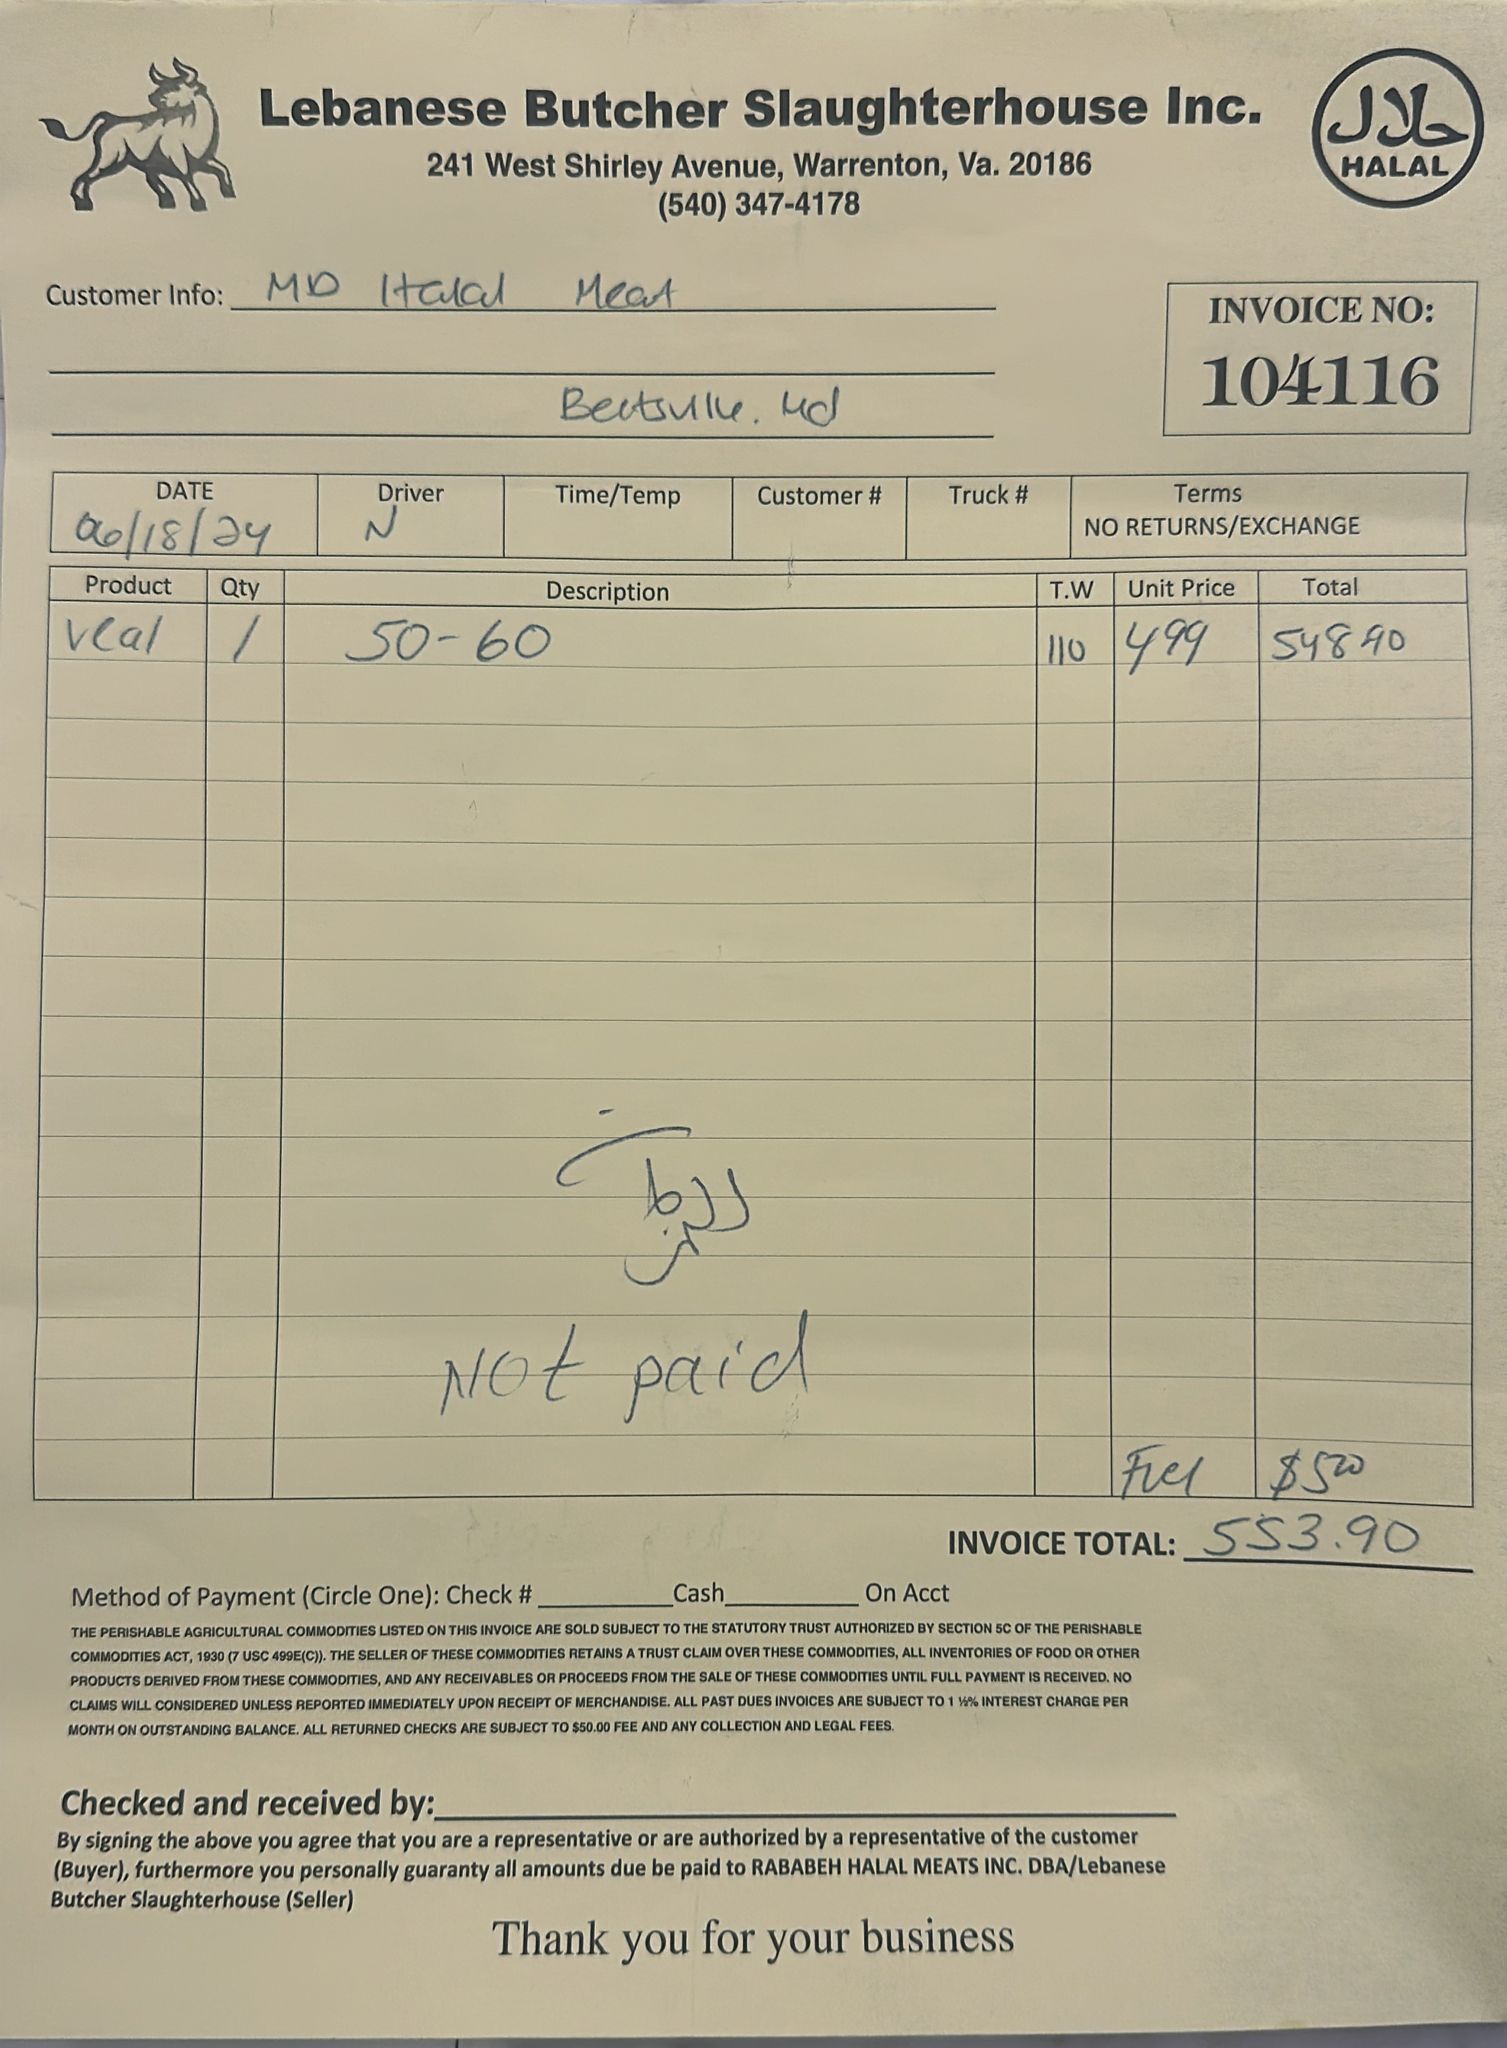 Lebanese Butcher Slaughterhouse Inc.
241 West Shirley Avenue, Warrenton, Va. 20186
(540) 347-4178
حلال
HALAL
Customer Info: MD Halal Meat
INVOICE NO:
104116
Beltsville. Md
DATE Driver Time/Temp Customer # Truck # Terms
06/18/24 N NO RETURNS/EXCHANGE
Product Qty Description T.W Unit Price Total
Veal 1 50-60 110 4 99 548 90
Not paid
Fuel $5 00
INVOICE TOTAL: 553.90
Method of Payment (Circle One): Check # Cash On Acct
THE PERISHABLE AGRICULTURAL COMMODITIES LISTED ON THIS INVOICE ARE SOLD SUBJECT TO THE STATUTORY TRUST AUTHORIZED BY SECTION 5C OF THE PERISHABLE
COMMODITIES ACT, 1930 (7 USC 499E(C)). THE SELLER OF THESE COMMODITIES RETAINS A TRUST CLAIM OVER THESE COMMODITIES, ALL INVENTORIES OF FOOD OR OTHER
PRODUCTS DERIVED FROM THESE COMMODITIES, AND ANY RECEIVABLES OR PROCEEDS FROM THE SALE OF THESE COMMODITIES UNTIL FULL PAYMENT IS RECEIVED. NO
CLAIMS WILL CONSIDERED UNLESS REPORTED IMMEDIATELY UPON RECEIPT OF MERCHANDISE. ALL PAST DUES INVOICES ARE SUBJECT TO 1 ½% INTEREST CHARGE PER
MONTH ON OUTSTANDING BALANCE. ALL RETURNED CHECKS ARE SUBJECT TO $50.00 FEE AND ANY COLLECTION AND LEGAL FEES.
Checked and received by:
By signing the above you agree that you are a representative or are authorized by a representative of the customer
(Buyer), furthermore you personally guaranty all amounts due be paid to RABABEH HALAL MEATS INC. DBA/Lebanese
Butcher Slaughterhouse (Seller)
Thank you for your business